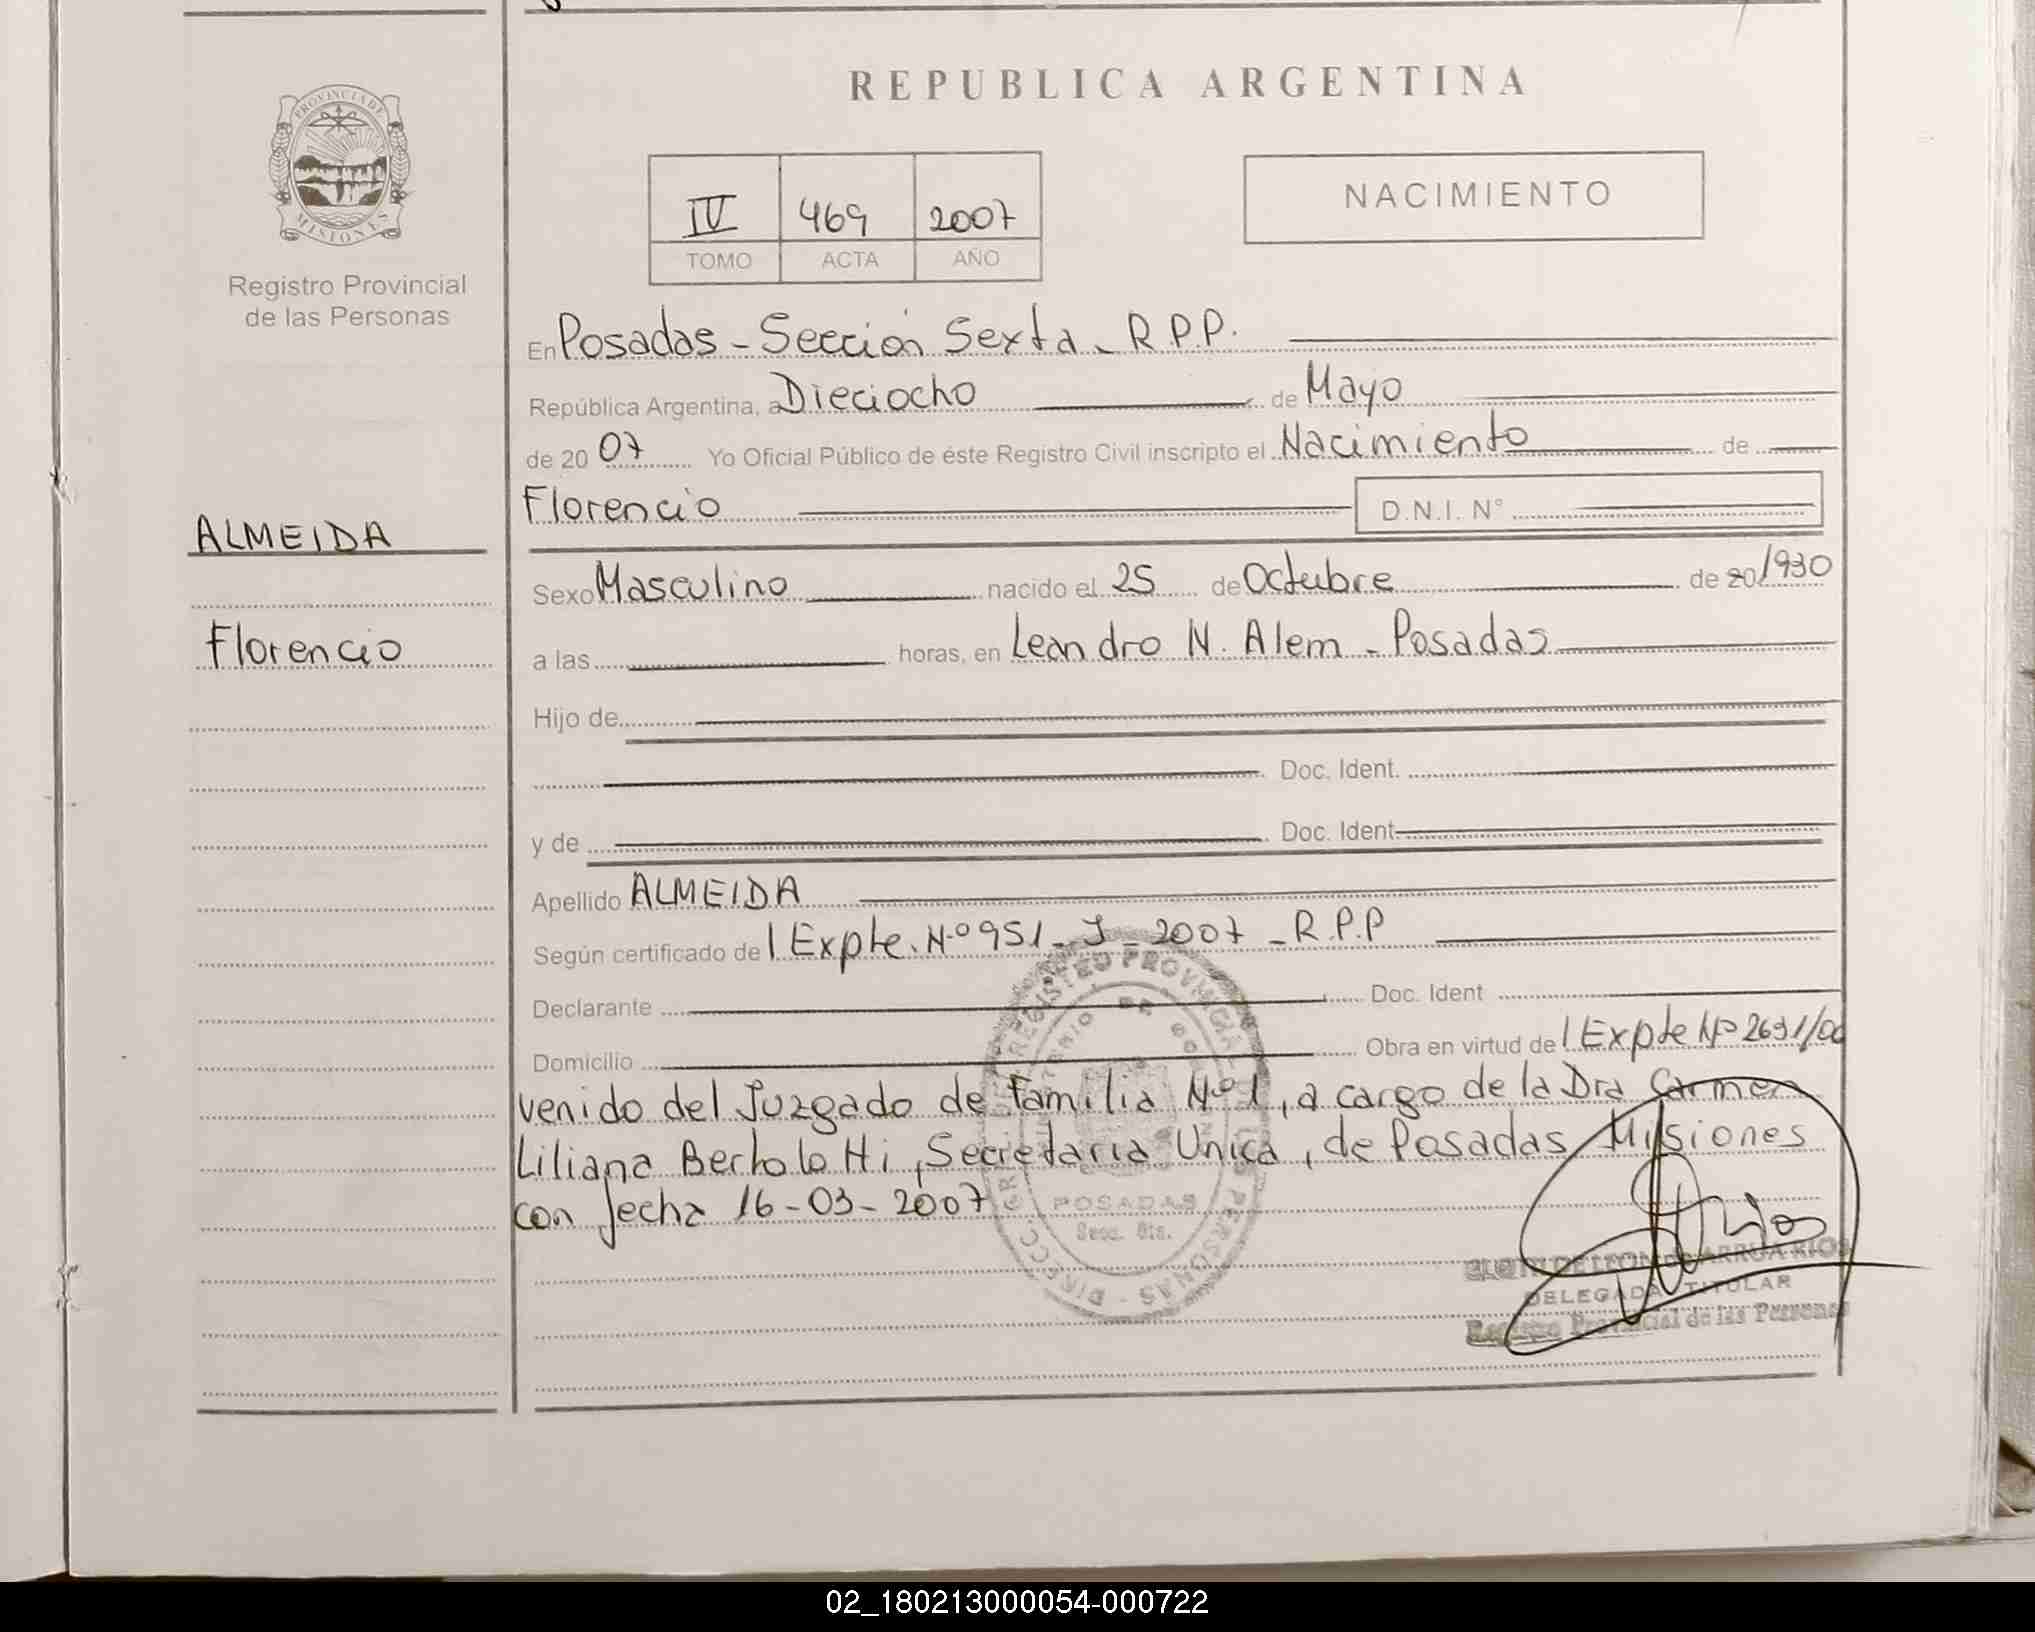 REPUBLICA ARGENTINA
PROVINCIA DE MISIONES
Registro Provincial
de las Personas
IV 469 2007
TOMO ACTA AÑO
NACIMIENTO
En Posadas - Sección Sexta - R.P.P.
República Argentina, a Dieciocho de Mayo
de 20 07 Yo Oficial Público de éste Registro Civil inscripto el Nacimiento de
Florencio D.N.I. N°
ALMEIDA
Florencio
Sexo Masculino nacido el 25 de Octubre de 20 1930
a las horas, en Leandro N. Alem - Posadas
Hijo de
Doc. Ident.
y de Doc. Ident
Apellido ALMEIDA
Según certificado de Expte. Nº 951 - J - 2007 - R.P.P
Declarante Doc. Ident
Domicilio Obra en virtud de Expte Nº 2631/06
venido del Juzgado de Familia Nº 1, a cargo de la Dra Carmen
Liliana Bertolotti, Secretaria Unica, de Posadas Misiones
con fecha 16-03-2007
POSADAS
Secc. 6ta.
ARRUA RIOS
DELEGADA TITULAR
Registro Provincial de las Personas
02_180213000054-000722